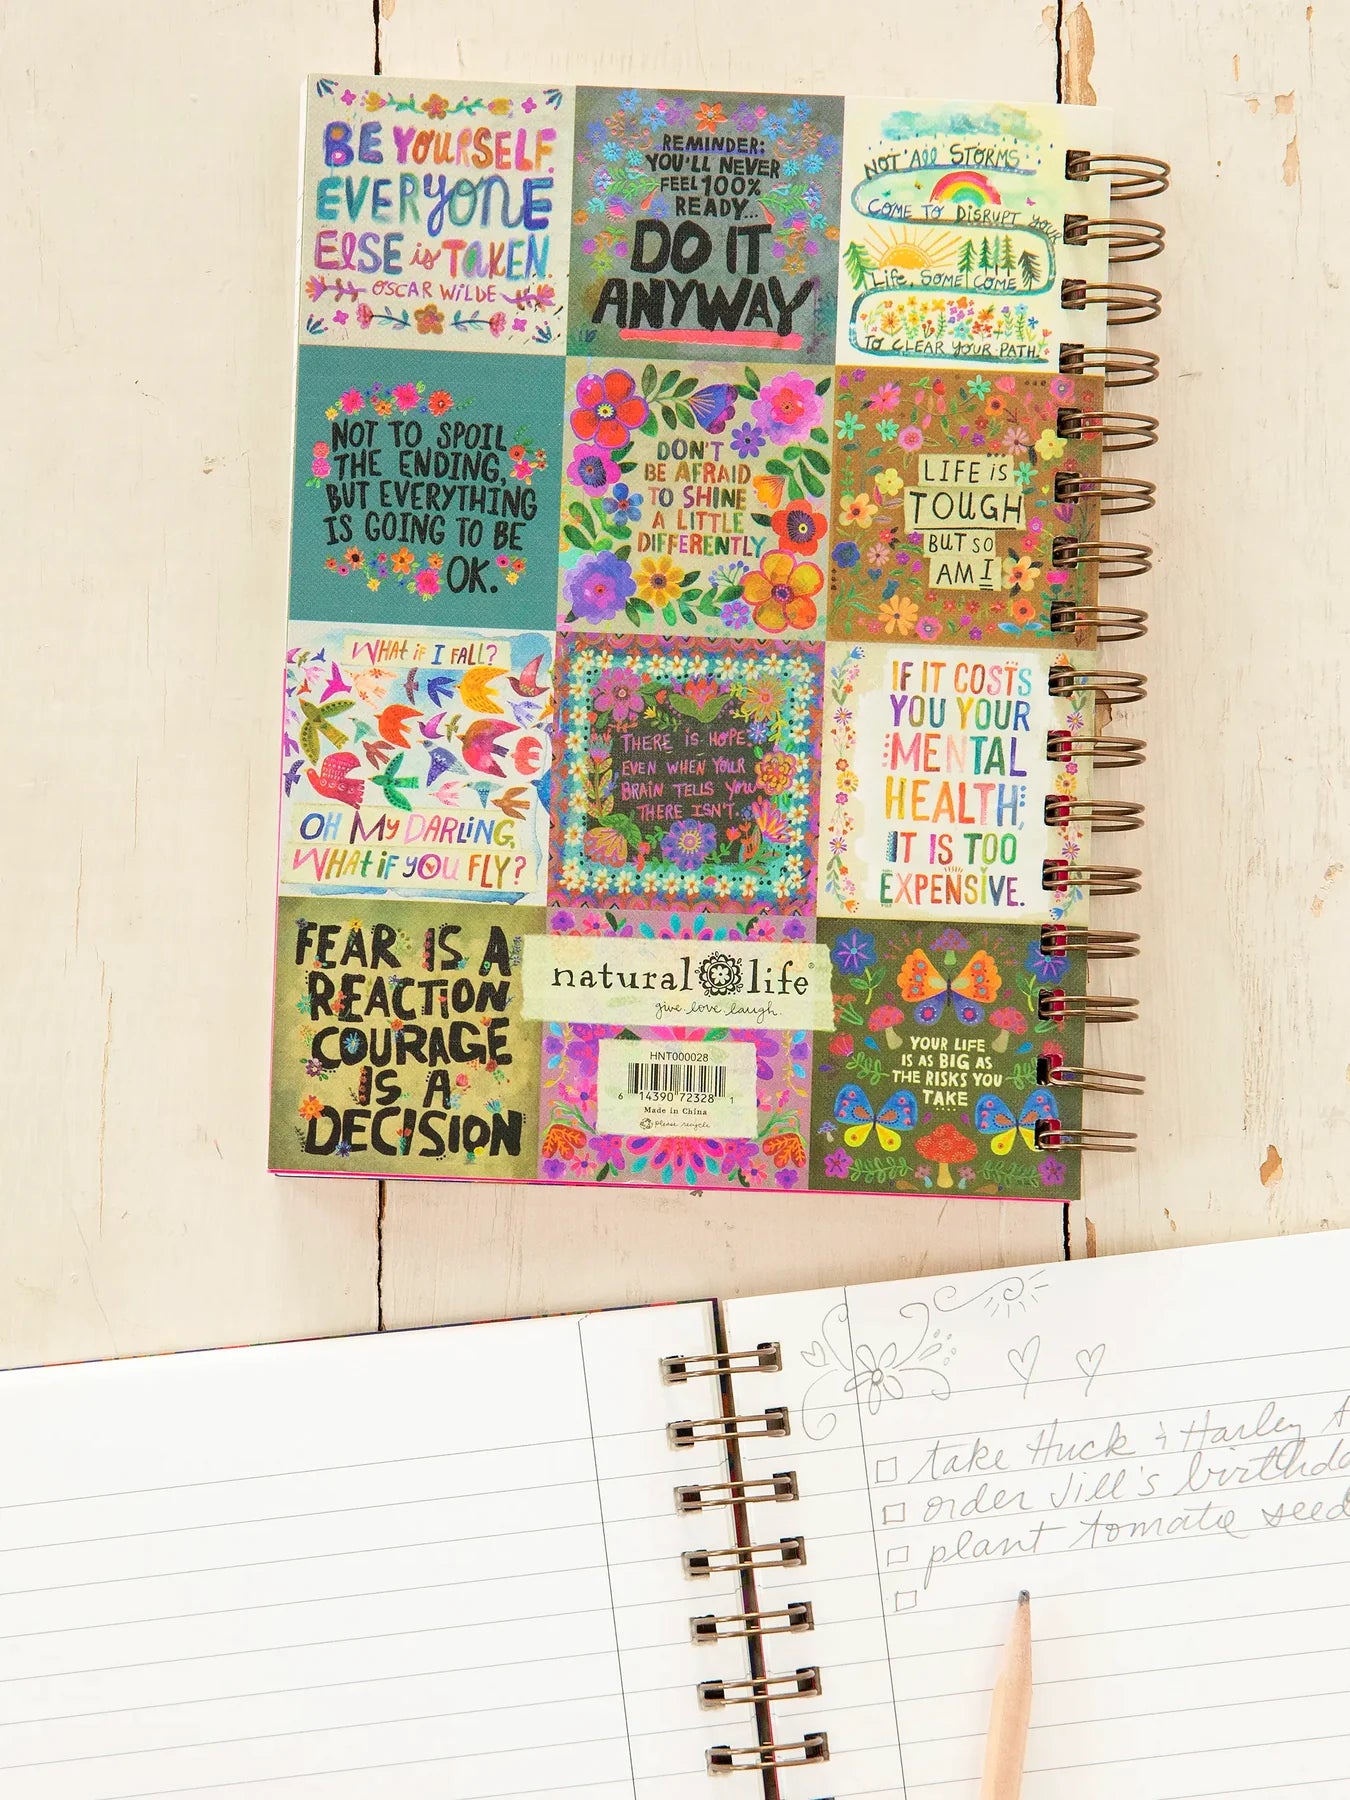 BE YOURSELF.
EVERYONE
ELSE is TAKEN.
OSCAR WILDE
REMINDER:
YOU'LL NEVER
FEEL 100%
READY...
DO IT
ANYWAY
NOT All STORMS
COME TO DISRUPT your
Life, SOME COME
TO CLEAR YOUR PATH.
NOT TO SPOIL
THE ENDING,
BUT EVERYTHING
IS GOING TO BE
OK.
DON'T
BE AFRAID
TO SHINE
A LITTLE
DIFFERENTLY
LIFE is
TOUGH
BUT SO
AM I
WHAT iF I FALL?
OH My DARLING,
WHAT iF yOU FLY?
THERE IS HOPE.
EVEN WHEN YOUR
BRAIN TELLS You
THERE ISN'T.
IF IT COSTS
YOU YOUR
MENTAL
HEALTH,
IT IS TOO
EXPENSIVE.
FEAR IS A
REACTION
COURAGE
IS A
DECISION
natural life®
give. love. laugh.
HNT000028
6 14390 72328 1
Made in China
please recycle
YOUR LIFE
IS AS BIG AS
THE RISKS YOU
TAKE
take Huck & Harley
order Jill's
plant tomatoe